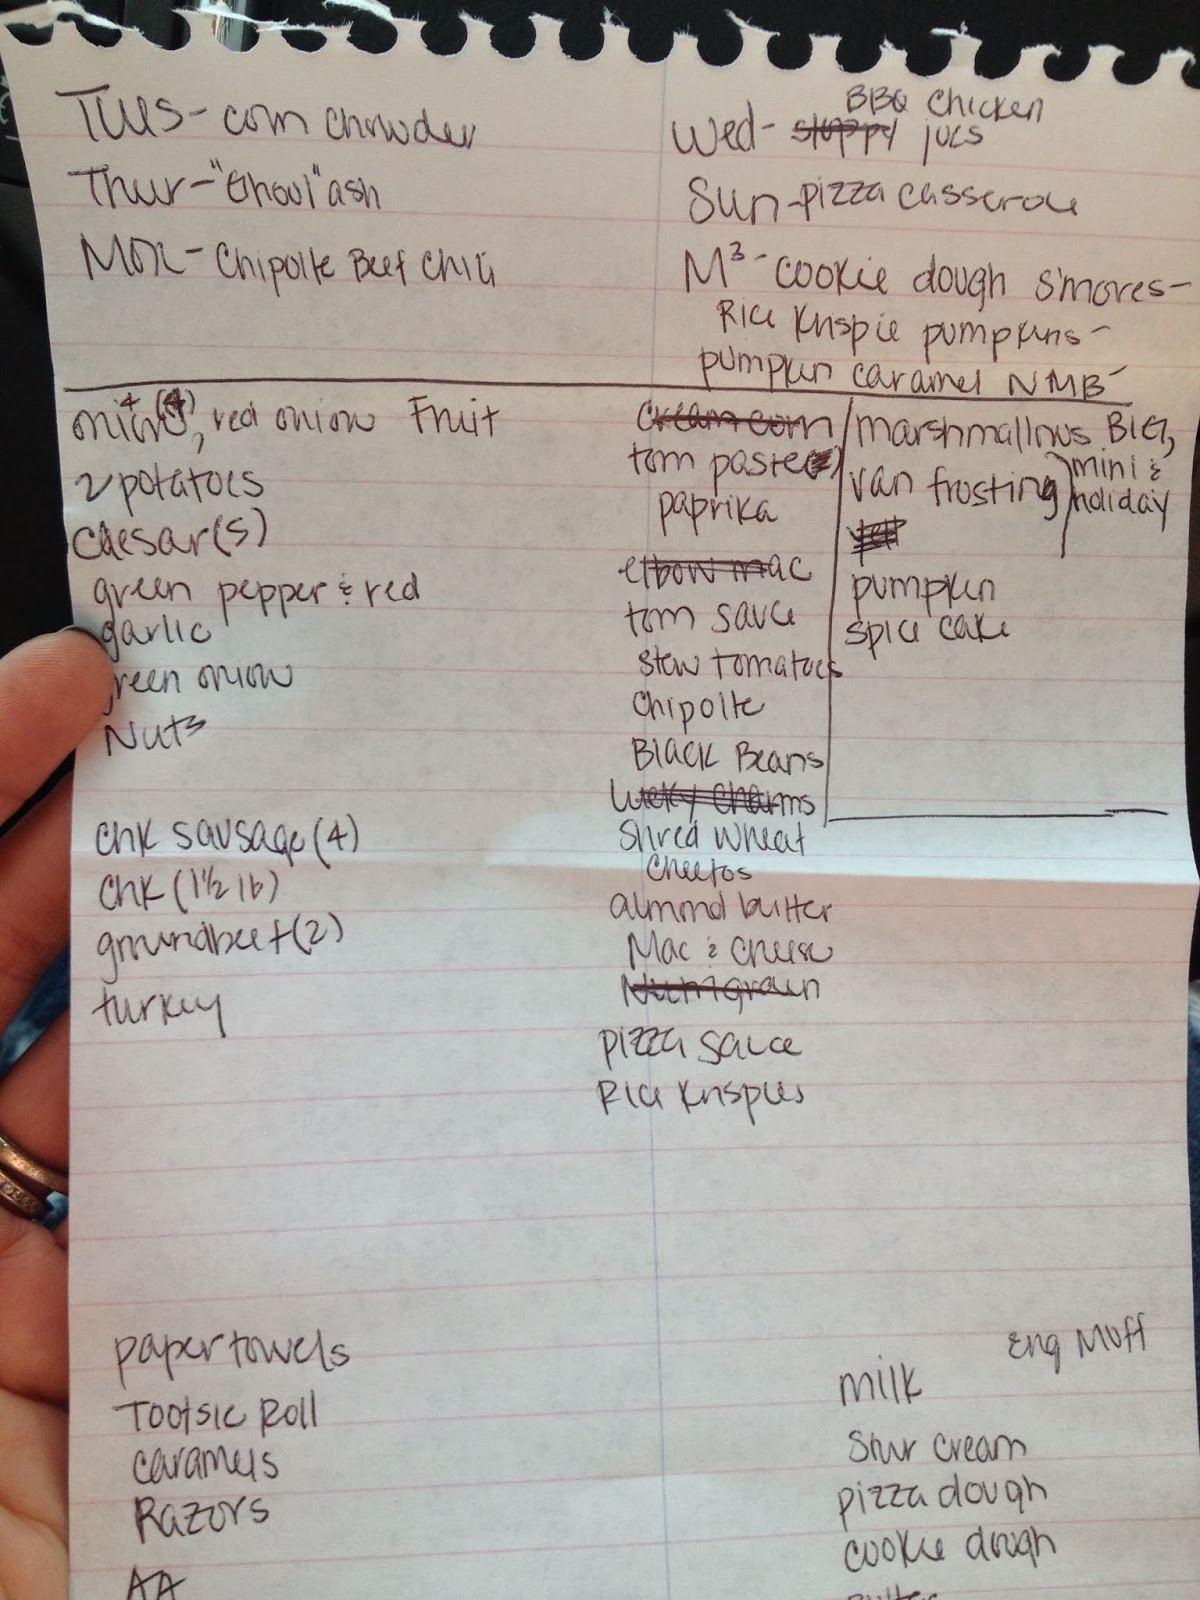 Tues - corn chowder
Thur - "Ghoul"ash
Mon - Chipolte Beef Chili
BBQ Chicken
Wed - sloppy joes
Sun - pizza casserole
M³ - cookie dough s'mores -
Rice Krispie pumpkins -
pumpkin caramel NMB -
onion 4 (4), red onion Fruit
2 potatoes
Caesar (5)
green pepper & red
garlic
green onion
Nuts
chk sausage (4)
chk (1½ lb)
ground beef (2)
turkey
cream corn
tom paste
paprika
elbow mac
tom sauce
stew tomatoes
Chipolte
Black Beans
Lucky Charms
Shred Wheat
Cheetos
almond butter
Mac & Cheese
Nutrigrain
pizza sauce
Rice Krispies
marshmallows BIG,
mini &
holiday
van frosting
pumpkin
spice cake
paper towels
Tootsie Roll
caramels
Razors
AA
Eng Muff
milk
sour cream
pizza dough
cookie dough